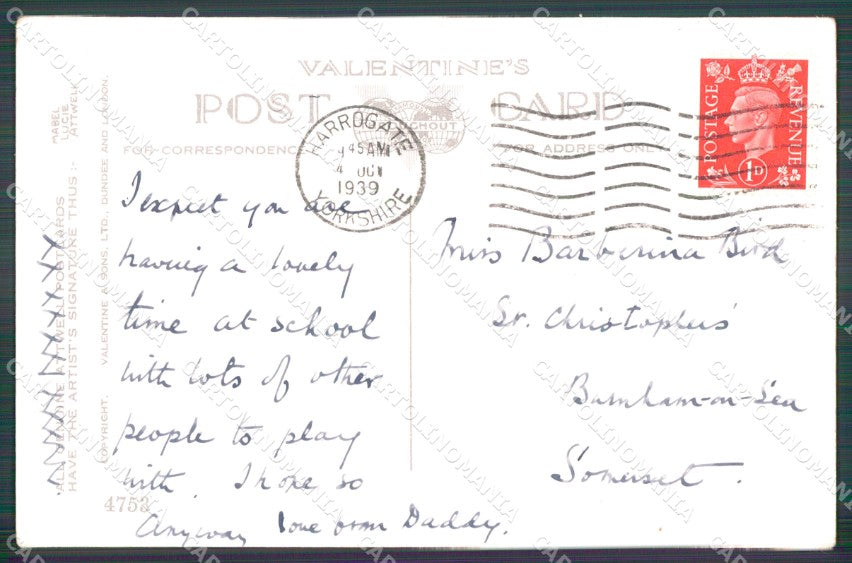 VALENTINE'S
POST CARD
FOR CORRESPONDENCE
FOR ADDRESS ONLY
HARROGATE
45 AM
4 OC
1939
YORKSHIRE
POSTAGE REVENUE
1D
I expect you are
having a lovely
time at school
with lots of other
people to play
with. I hope so
anyway love from Daddy.
Miss Barberina Bird
St. Christophers'
Burnham-on-Sea
Somerset.
ALL GENUINE ATTWELL POSTCARDS
HAVE THE ARTIST'S SIGNATURE THUS:-
MABEL
LUCIE
ATTWELL
COPYRIGHT. VALENTINE & SONS, LTD., DUNDEE AND LONDON.
4753
CARTOLINOMANIA